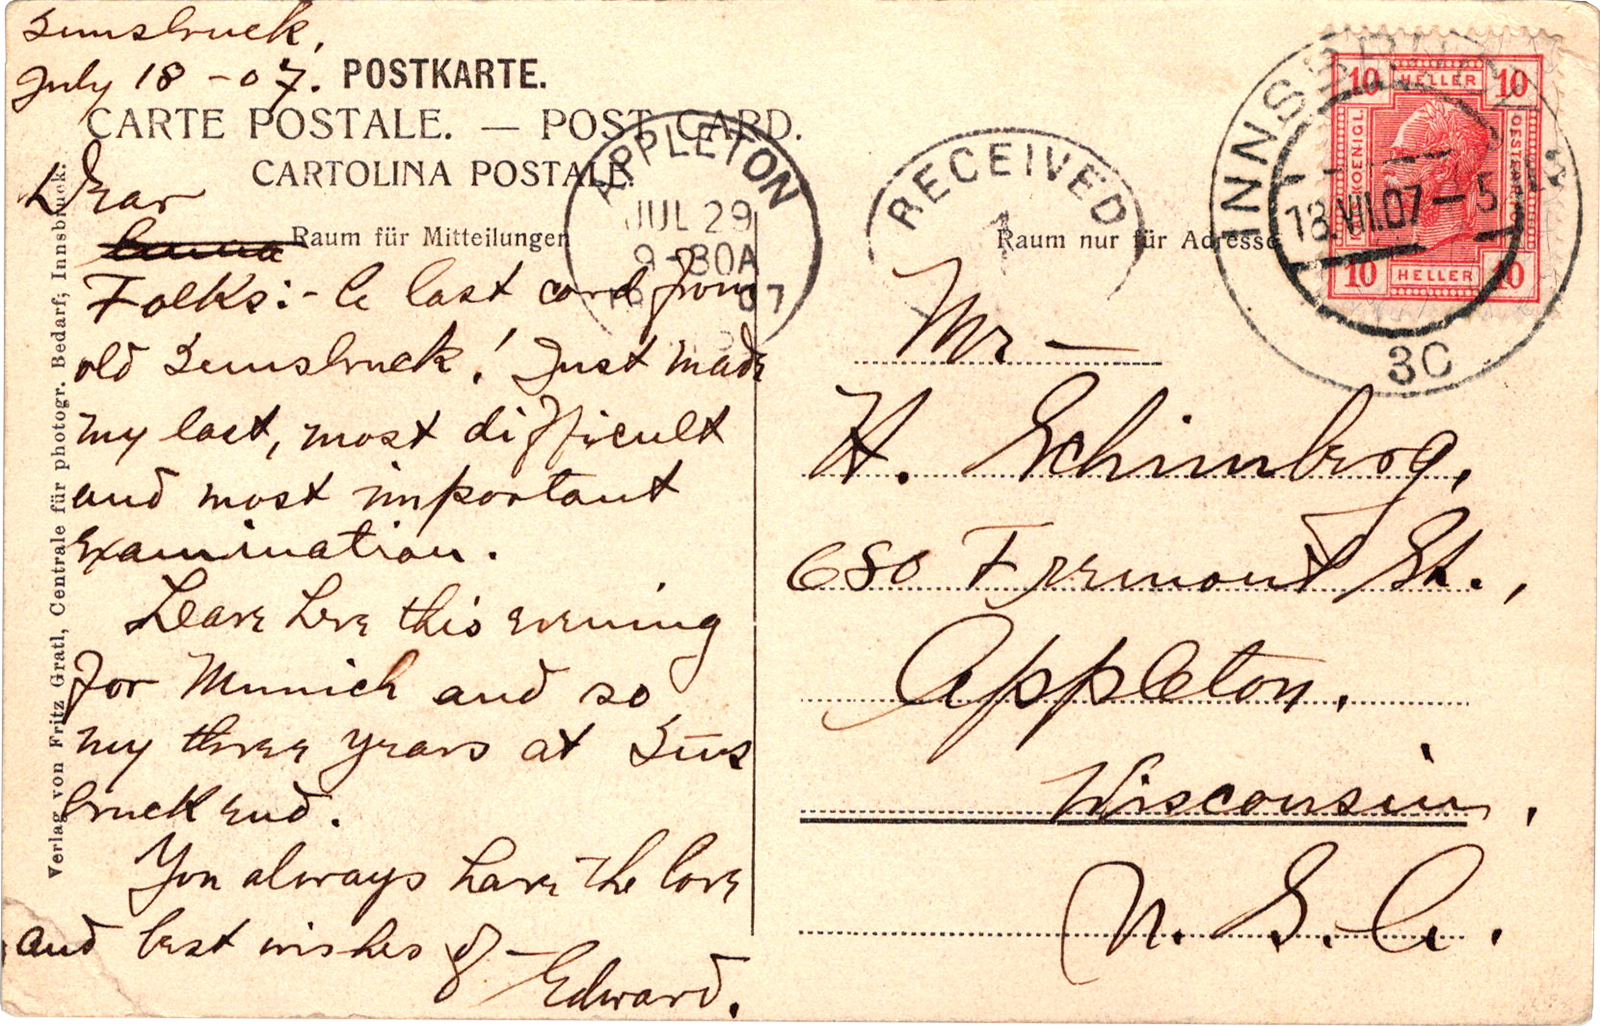 Innsbruck,
July 18 - 07.
POSTKARTE.
CARTE POSTALE. — POST CARD.
CARTOLINA POSTALE.
Raum für Mitteilungen
Raum nur für Adresse
Dear
Folks:- A last card from
old Innsbruck! Just made
my last, most difficult
and most important
examination.
Leave here this evening
for Munich and so
my three years at Inns
bruck end.
You always have the love
and best wishes of —
Edward.
Verlag von Fritz Gratl, Centrale für photogr. Bedarf, Innsbruck.
APPLETON
JUL 29
9-30A
07
RECEIVED
1
INNSBRUCK 2
18.VII.07-5
3C
10 HELLER 10
10 HELLER 10
Mr —
H. Schimberg,
680 Fremont St.,
Appleton,
Wisconsin,
U. S. A.